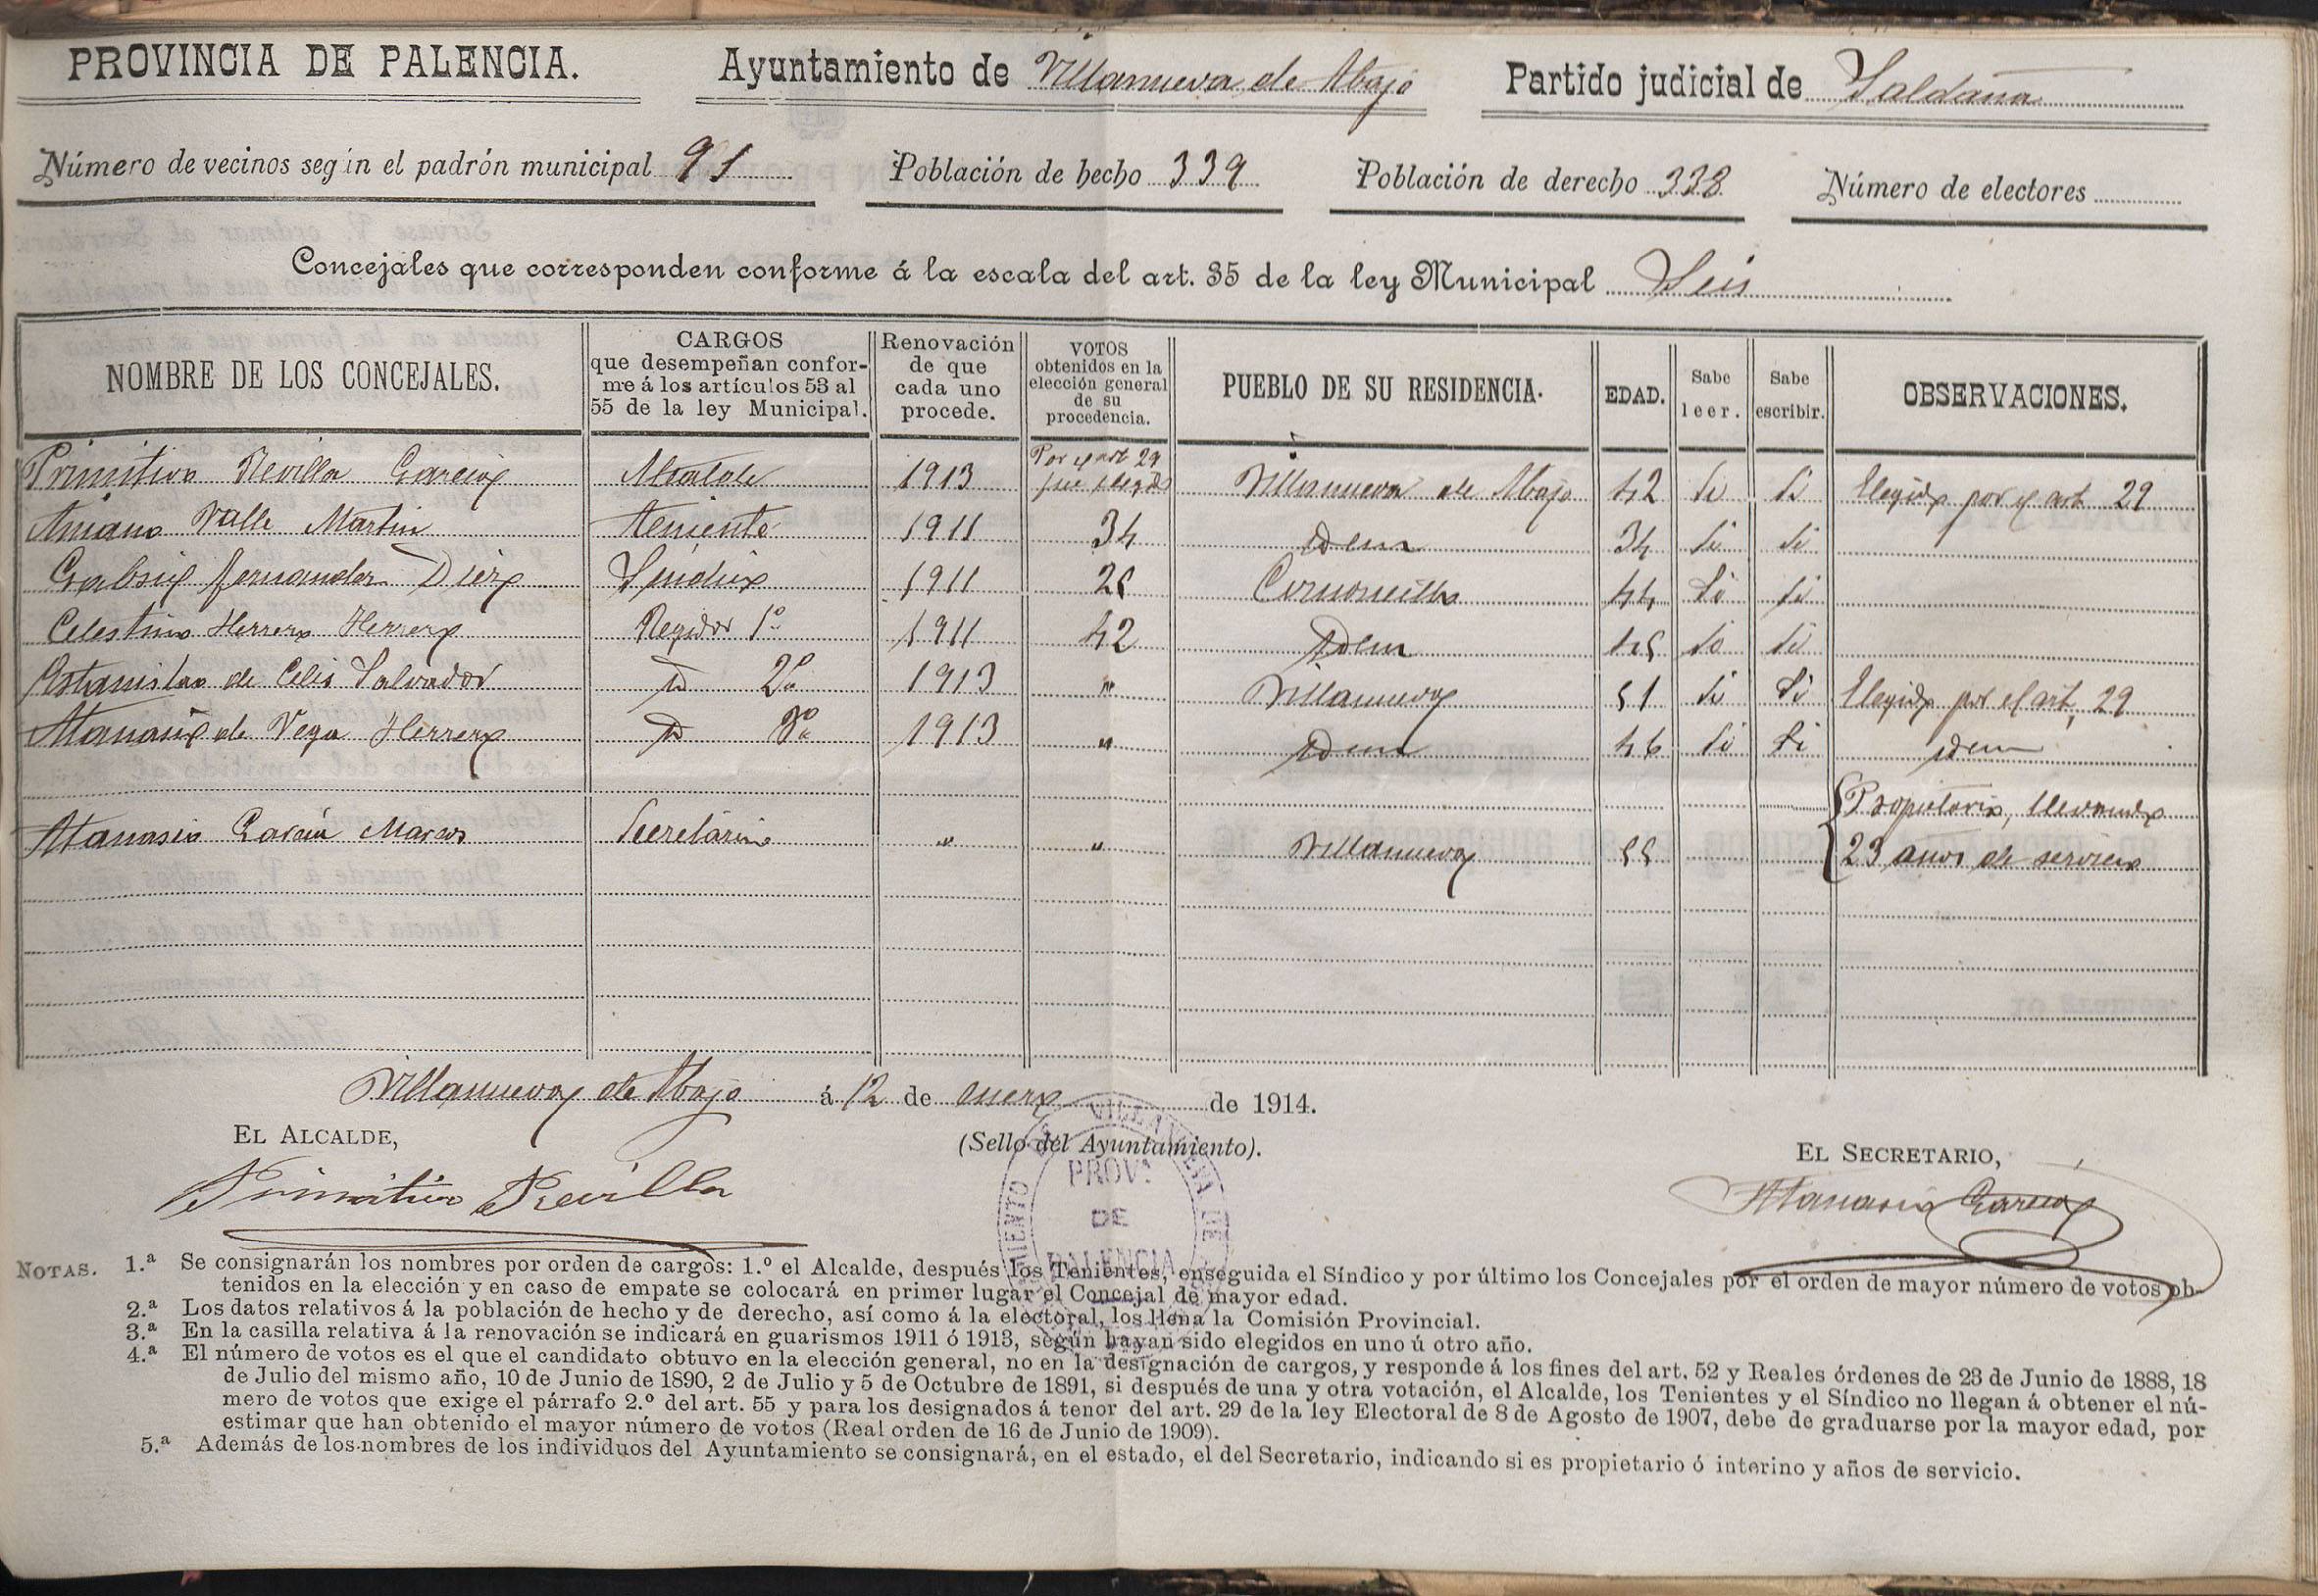 PROVINCIA DE PALENCIA. Ayuntamiento de Villanueva de Abajo Partido judicial de Saldaña
Número de vecinos según el padrón municipal 91 Población de hecho 339 Población de derecho 338 Número de electores
Concejales que corresponden conforme á la escala del art. 35 de la ley Municipal Seis
NOMBRE DE LOS CONCEJALES. CARGOS que desempeñan conforme á los artículos 53 al 55 de la ley Municipal. Renovación de que cada uno procede. VOTOS obtenidos en la elección general de su procedencia. PUEBLO DE SU RESIDENCIA. EDAD. Sabe leer. Sabe escribir. OBSERVACIONES.
Primitivo Revilla Garcia Alcalde 1913 Por el art 29 fue elegido Villanueva de Abajo 42 Si Si Elegido por el art 29
Aniano Valle Martin Teniente 1911 34 idem 34 Si Si
Gabriel Fernandez Diez Sindico 1911 25 Cornoncillo 44 Si Si
Celestino Herrero Herrero Regidor 1º 1911 42 Idem 45 Si Si
Estanislao de Celis Salvador Id 2º 1913 " Villanueva 51 Si Si Elegido por el art, 29
Atanasio de Vega Herrero Id 3º 1913 " Idem 46 Si Si idem
Atanasio Garcia Marcos Secretario " " Villanueva 55 Propietario, llevando
23 años de servicio
Villanueva de Abajo á 12 de enero de 1914.
EL ALCALDE, (Sello del Ayuntamiento). EL SECRETARIO,
Primitivo Revilla Atanasio Garcia
PROV.ª
DE
PALENCIA
NOTAS. 1.ª Se consignarán los nombres por orden de cargos: 1.º el Alcalde, después los Tenientes, enseguida el Síndico y por último los Concejales por el orden de mayor número de votos ob-
tenidos en la elección y en caso de empate se colocará en primer lugar el Concejal de mayor edad.
2.ª Los datos relativos á la población de hecho y de derecho, así como á la electoral, los llena la Comisión Provincial.
3.ª En la casilla relativa á la renovación se indicará en guarismos 1911 ó 1913, según hayan sido elegidos en uno ú otro año.
4.ª El número de votos es el que el candidato obtuvo en la elección general, no en la designación de cargos, y responde á los fines del art. 52 y Reales órdenes de 23 de Junio de 1888, 18
de Julio del mismo año, 10 de Junio de 1890, 2 de Julio y 5 de Octubre de 1891, si después de una y otra votación, el Alcalde, los Tenientes y el Síndico no llegan á obtener el nú-
mero de votos que exige el párrafo 2.º del art. 55 y para los designados á tenor del art. 29 de la ley Electoral de 8 de Agosto de 1907, debe de graduarse por la mayor edad, por
estimar que han obtenido el mayor número de votos (Real orden de 16 de Junio de 1909).
5.ª Además de los nombres de los individuos del Ayuntamiento se consignará, en el estado, el del Secretario, indicando si es propietario ó interino y años de servicio.